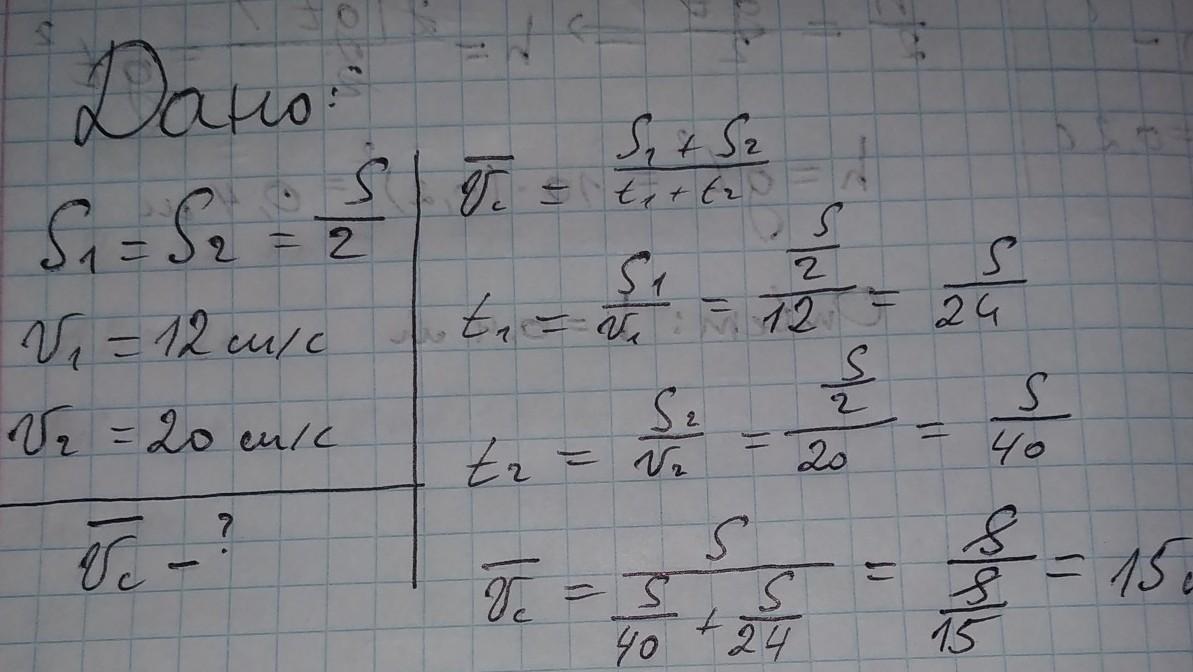 Дано:
S₁ = S₂ = S/2
v₁ = 12 м/с
v₂ = 20 м/с
v̅c – ?
v̅c = (S₁ + S₂)/(t₁ + t₂)
t₁ = S₁/v₁ = (S/2)/12 = S/24
t₂ = S₂/v₂ = (S/2)/20 = S/40
v̅c = S/(S/40 + S/24) = S/(S/15) = 15